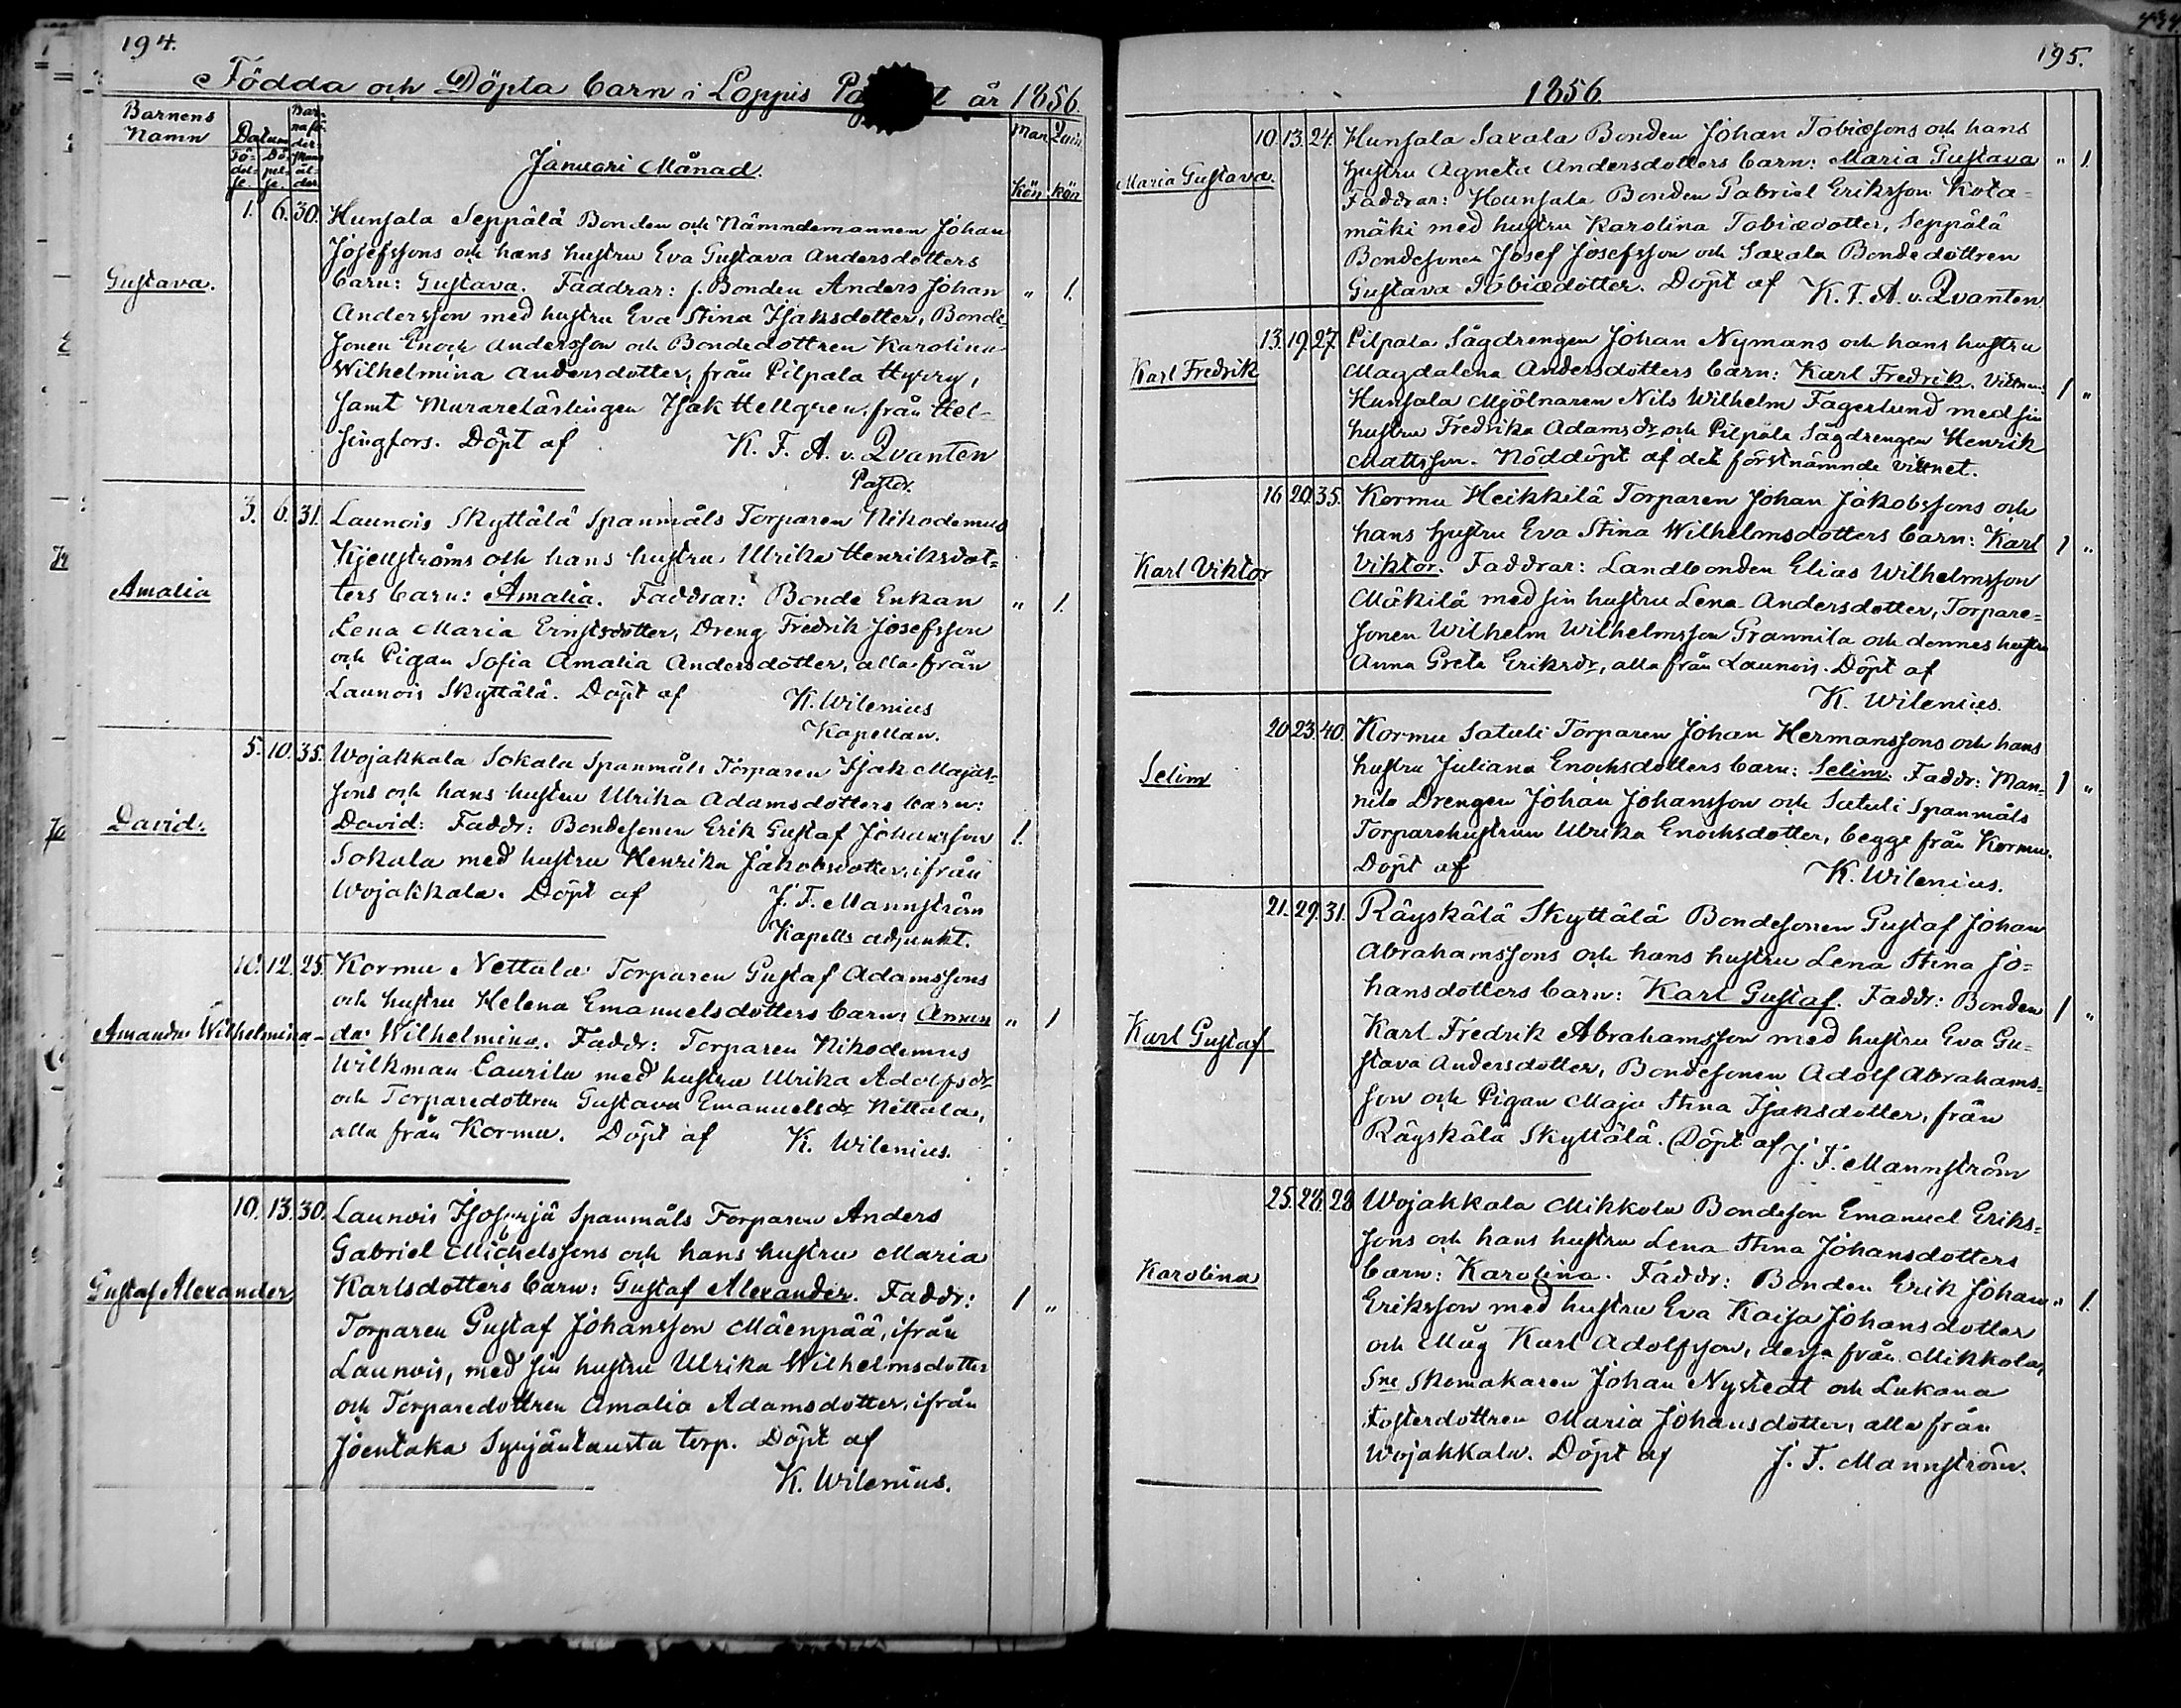 194.
Födda och Döpta barn i Loppis år 1856.
Barnens Namn
Datum
Fö-
del-
se.
Dö-
pel-
se.
Bar-
nafö-
der-
skans
ål-
der
Januari Månad.
Man
kön
Quin
kön
Gustava.
1. 6. 30. Hunsala Seppälä Bonden och Nämndemannen Johan
Josefssons och hans hustru Eva Gustava Andersdotters
barn: Gustava. Faddrar: f. Bonden Anders Johan " 1.
Andersson med hustru Eva Stina Isaksdotter, Bonde-
sonen Enoch Andersson och Bondedottren Karolina
Wilhelmina Andersdotter, från Pilpala Hyrry,
samt Murarelärlingen Isak Hellgren, från Hel-
singfors. Döpt af K. F. A. v. Qvanten
Pastor.
Amalia
3. 6. 31. Launois Skyttälä Spanmåls Torparen Nikodemus
Kjellströms och hans hustru Ulrika Henriksdot-
ters barn: Amalia. Faddrar: Bonde Enkan " 1.
Lena Maria Ernstsdotter, Dreng Fredrik Josefsson
och Pigan Sofia Amalia Andersdotter, alla från
Launois Skyttälä. Döpt af K. Wilenius
Kapellan.
David.
5. 10. 35. Wojakkala Sokala Spanmåls Torparen Isak Majas-
sons och hans hustru Ulrika Adamsdotters barn:
David: Faddr: Bondesonen Erik Gustaf Johansson 1.
Sokala med hustru Henrika Jakobsdotter, ifrån
Wojakkala. Döpt af J. F. Mannström
Kapells adjunkt.
Amanda Wilhelmina
10. 12. 25. Kormu Nettala Torparen Gustaf Adamssons
och hustru Helena Emanuelsdotters barn: Aman " 1
da Wilhelmina. Faddr: Torparen Nikodemus
Wilkman Laurila med hustru Ulrika Adolfsdr
och Torparedottren Gustava Emanuelsdr Nettala,
alla från Kormu. Döpt af K. Wilenius.
Gustaf Alexander
10. 13. 30. Launois Spanmåls Torparen Anders
Gabriel Michelssons och hans hustru Maria
Karlsdotters barn: Gustaf Alexander. Faddr: 1 "
Torparen Gustaf Johansson Mäenpää, ifrån
Launois, med sin hustru Ulrika Wilhelmsdotter
och Torparedottren Amalia Adamsdotter, ifrån
Joentaka Syrjäntausta torp. Döpt af
K. Wilenius.
195.
1856.
Maria Gustava.
10. 13. 24. Hunsala Saxala Bonden Johan Tobiæsons och hans
hustru Agneta Andersdotters barn: Maria Gustava " 1.
Faddrar: Hunsala Bonden Gabriel Eriksson Kota-
mäki med hustru Karolina Tobiædotter, Seppälä
Bondesonen Josef Josefsson och Saxala Bondedottren
Gustava Tobiædotter. Döpt af K. F. A. v. Qvanten
Karl Fredrik
13. 19. 27. Pilpala Sågdrengen Johan Nymans och hans hustru
Magdalena Andersdotters barn: Karl Fredrik. Vittnen: 1 "
Hunsala Mjölnaren Nils Wilhelm Fagerlund med sin
hustru Fredrika Adamsdr och Pilpala Sågdrengen Henrik
Mattsson. Nöddöpt af det förstnämnde vittnet.
Karl Viktor
16 20. 35. Kormu Heikkilä Torparen Johan Jakobssons och
hans hustru Eva Stina Wilhelmsdotters barn: Karl 1 "
Viktor. Faddrar: Landbonden Elias Wilhelmsson
Mäkilä med sin hustru Lena Andersdotter, Torpare-
sonen Wilhelm Wilhelmsson Grannila och dennes hustru
Anna Greta Eriksdr, alla från Launois. Döpt af
K. Wilenius.
Selim
20. 23. 40. Kormu Satuli Torparen Johan Hermanssons och hans
hustru Juliana Enochsdotters barn: Selim. Faddr: Man- 1 "
nila Drengen Johan Johansson och Satuli Spanmåls
Torparehustrun Ulrika Enochsdotter, begge från Kormu.
Döpt af K. Wilenius.
Karl Gustaf
21. 29. 31. Räyskälä Skyttälä Bondesonen Gustaf Johan
Abrahamssons och hans hustru Lena Stina Jo-
hansdotters barn: Karl Gustaf. Faddr: Bonden 1 "
Karl Fredrik Abrahamsson med hustru Eva Gu-
stava Andersdotter, Bondesonen Adolf Abrahams-
son och Pigan Maja Stina Isaksdotter, från
Räyskälä Skyttälä. Döpt af J. F. Mannström
Karolina
25. 28. 28 Wojakkala Mikkola Bondeson Emanuel Eriks-
sons och hans hustru Lena Stina Johansdotters
barn: Karolina. Faddr: Bonden Erik Johan " 1.
Eriksson med hustru Eva Kaisa Johansdotter
och Måg Karl Adolfsson, dessa från Mikkola,
Sne Skomakaren Johan Nystedt och Lukana
Fosterdottren Maria Johansdotter, alla från
Wojakkala. Döpt af J. F. Mannström.